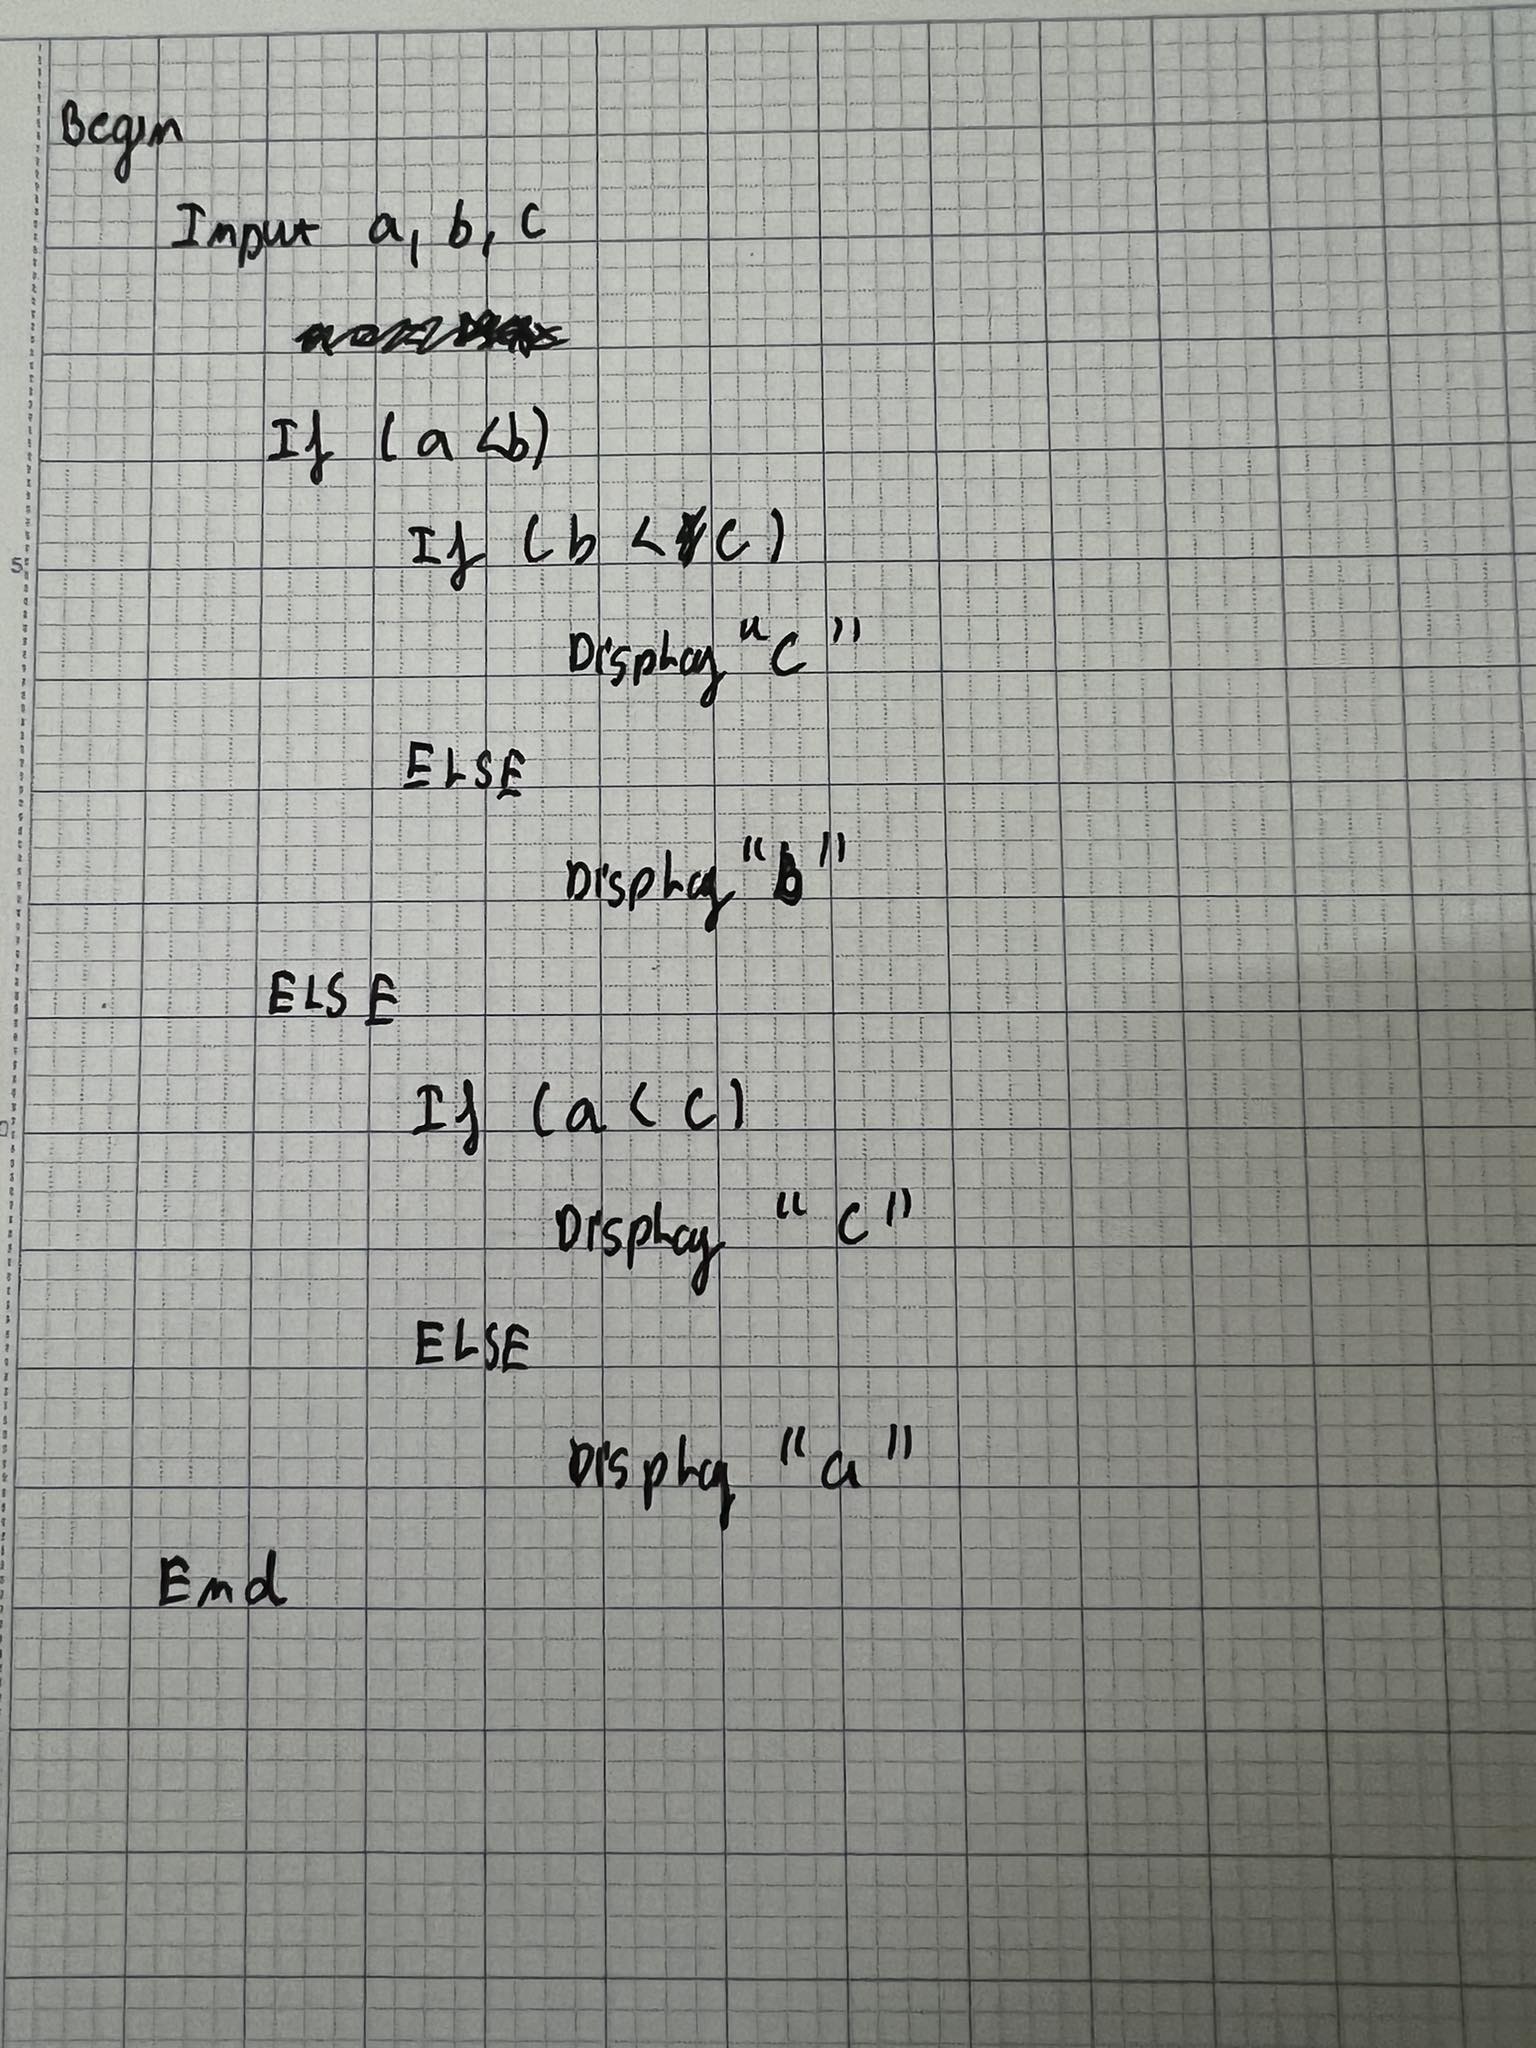 Begin
Input a, b, c
If (a < b)
If (b < c)
Display "c"
ELSE
Display "b"
ELSE
If (a < c)
Display "c"
ELSE
Display "a"
End
5